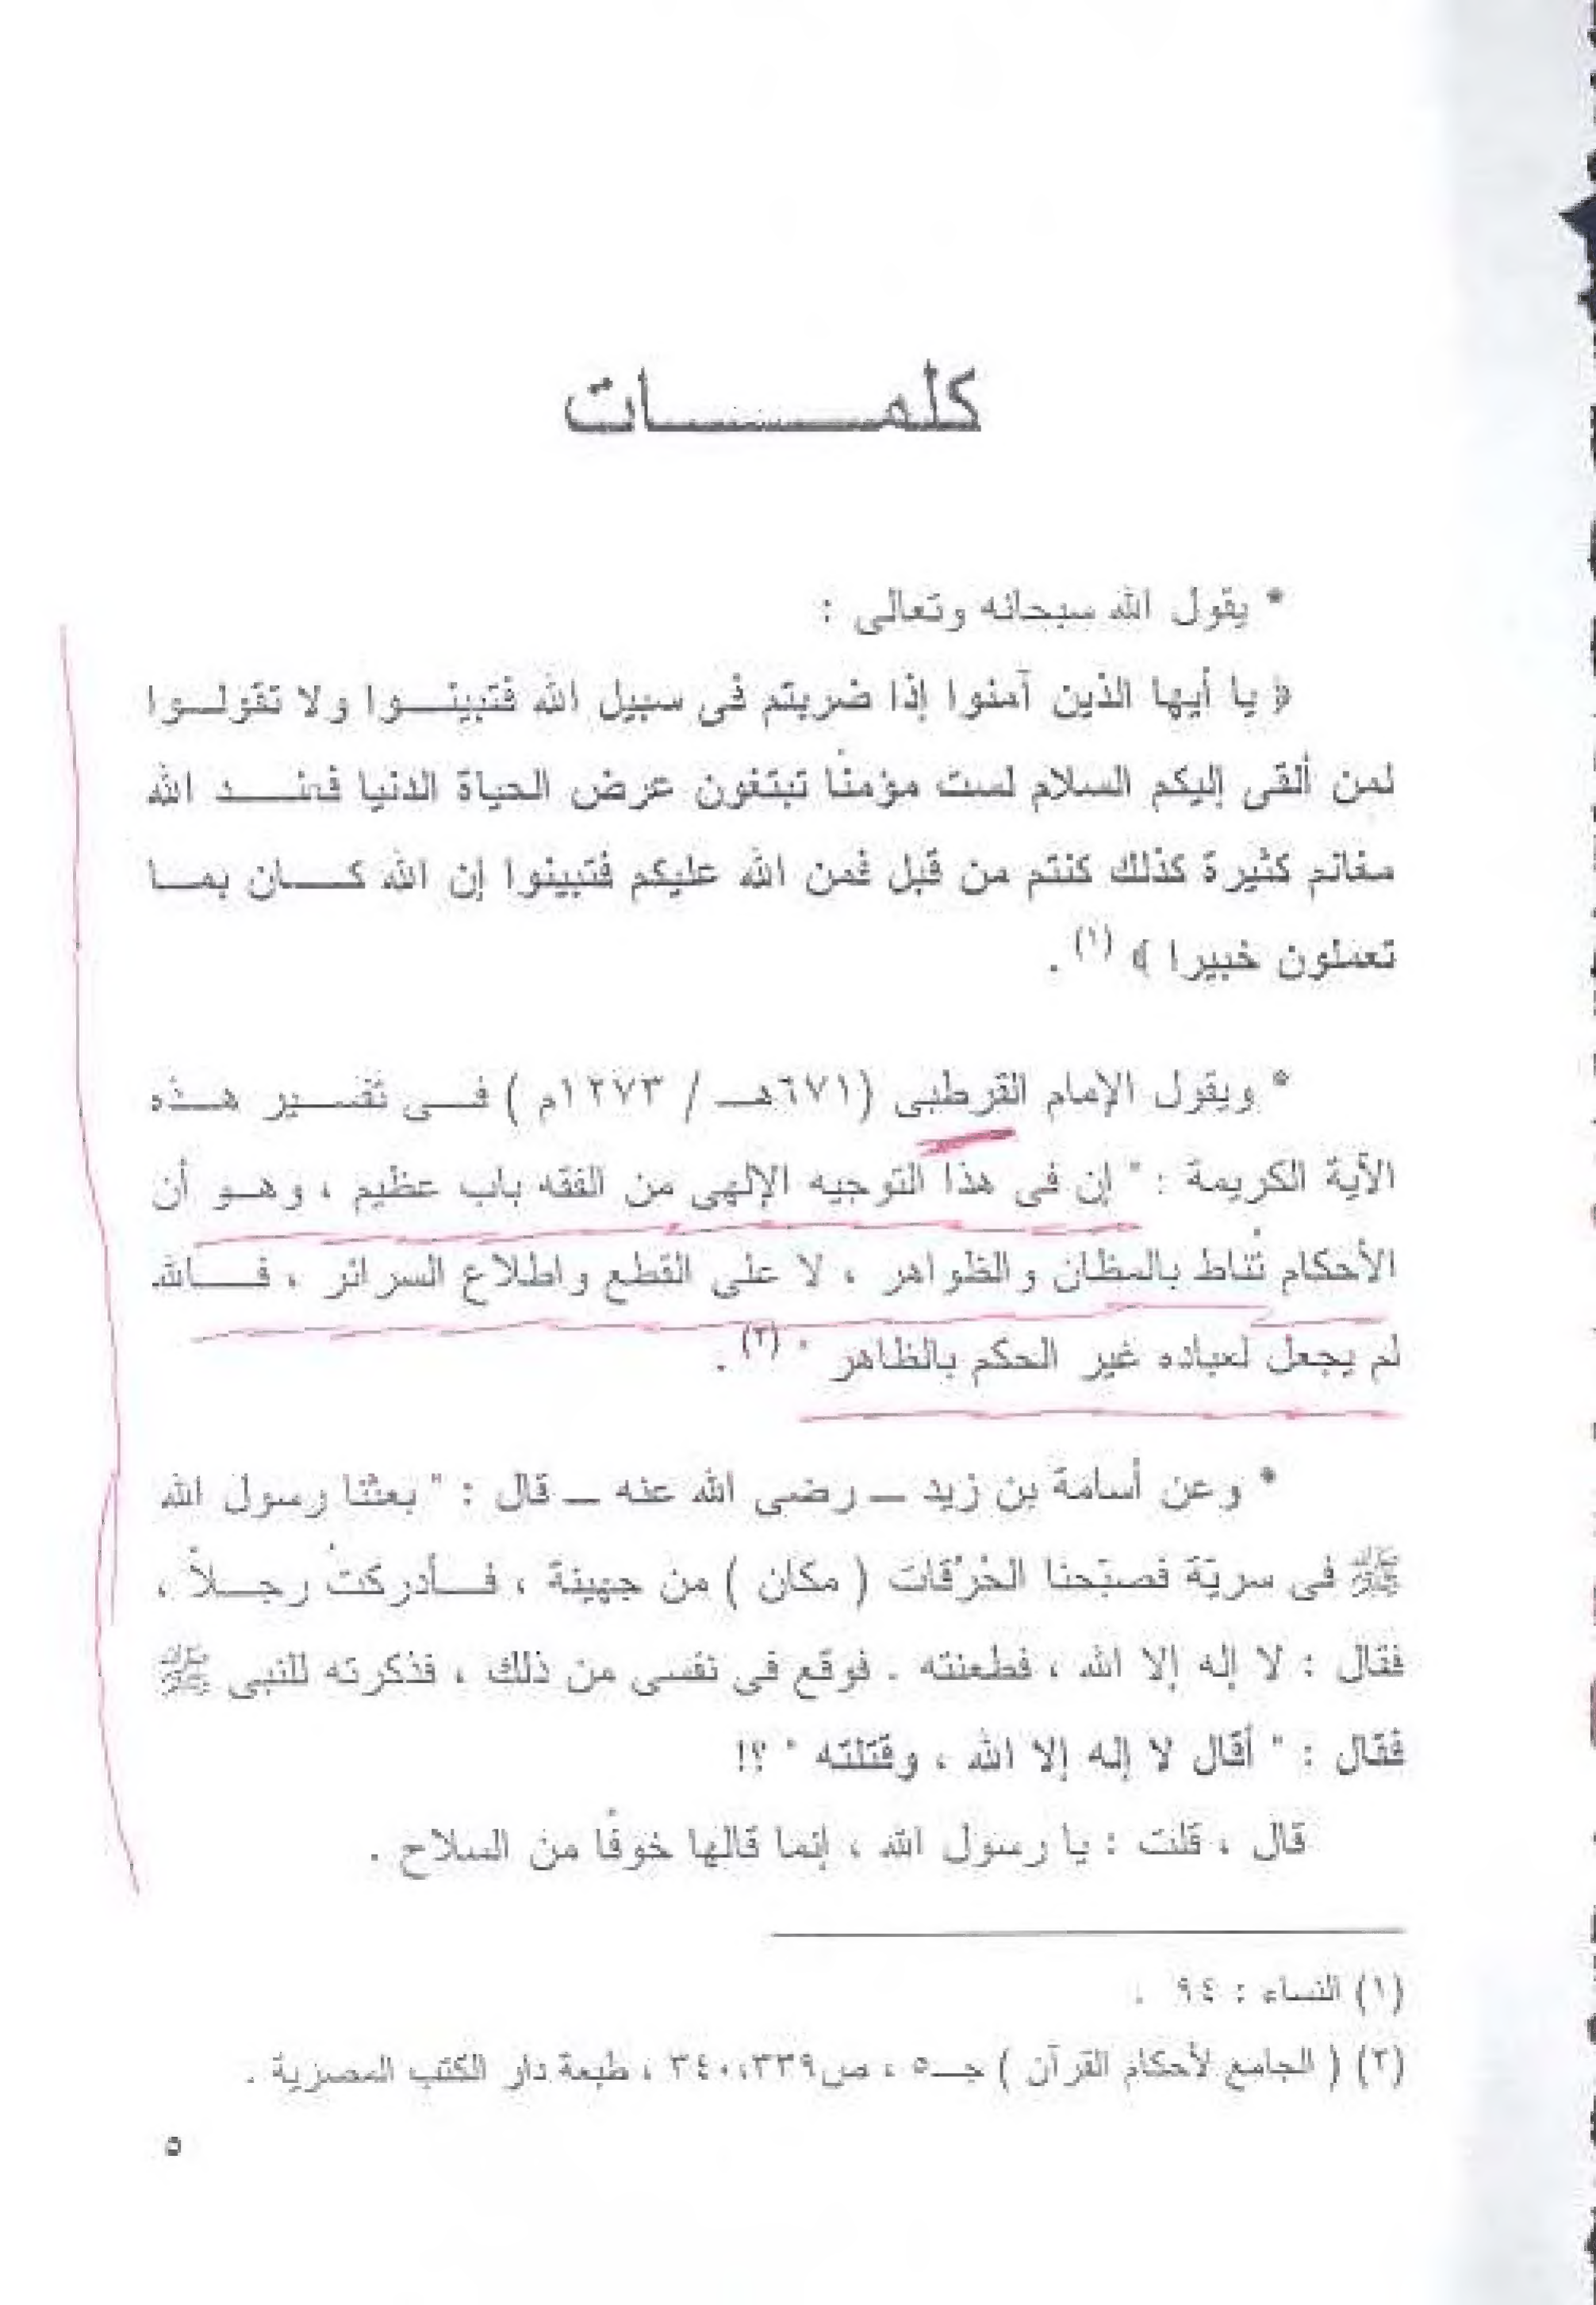 كلمــــــات
* يقول الله سبحانه وتعالى :
﴿ يا أيها الذين آمنوا إذا ضربتم فى سبيل الله فتبينــوا ولا تقولــوا
لمن ألقى إليكم السلام لست مؤمنًا تبتغون عرض الحياة الدنيا فعنــد الله
مغانم كثيرة كذلك كنتم من قبل فمن الله عليكم فتبينوا إن الله كــان بمــا
تعملون خبيرا ﴾ (١) .
* ويقول الإمام القرطبى (٦٧١هــ / ١٢٧٣م ) فــى تفســير هــذه
الآية الكريمة : " إن فى هذا التوجيه الإلهى من الفقه باب عظيم ، وهــو أن
الأحكام تُناط بالمظان والظواهر ، لا على القطع واطلاع السرائر ، فــالله
لم يجعل لعباده غير الحكم بالظاهر " (٢) .
* وعن أسامة بن زيد ــ رضى الله عنه ــ قال : " بعثنا رسول الله
ﷺ فى سريّة فصبّحنا الحُرُقات ( مكان ) من جهينة ، فــأدركتُ رجــلاً ،
فقال : لا إله إلا الله ، فطعنته . فوقع فى نفسى من ذلك ، فذكرته للنبى ﷺ
فقال : " أقال لا إله إلا الله ، وقتلته " ؟!
قال ، قلت : يا رسول الله ، إنما قالها خوفًا من السلاح .
(١) النساء : ٩٤ .
(٢) ( الجامع لأحكام القرآن ) جــ٥ ، ص٣٣٩،٣٤٠ ، طبعة دار الكتب المصرية .
٥